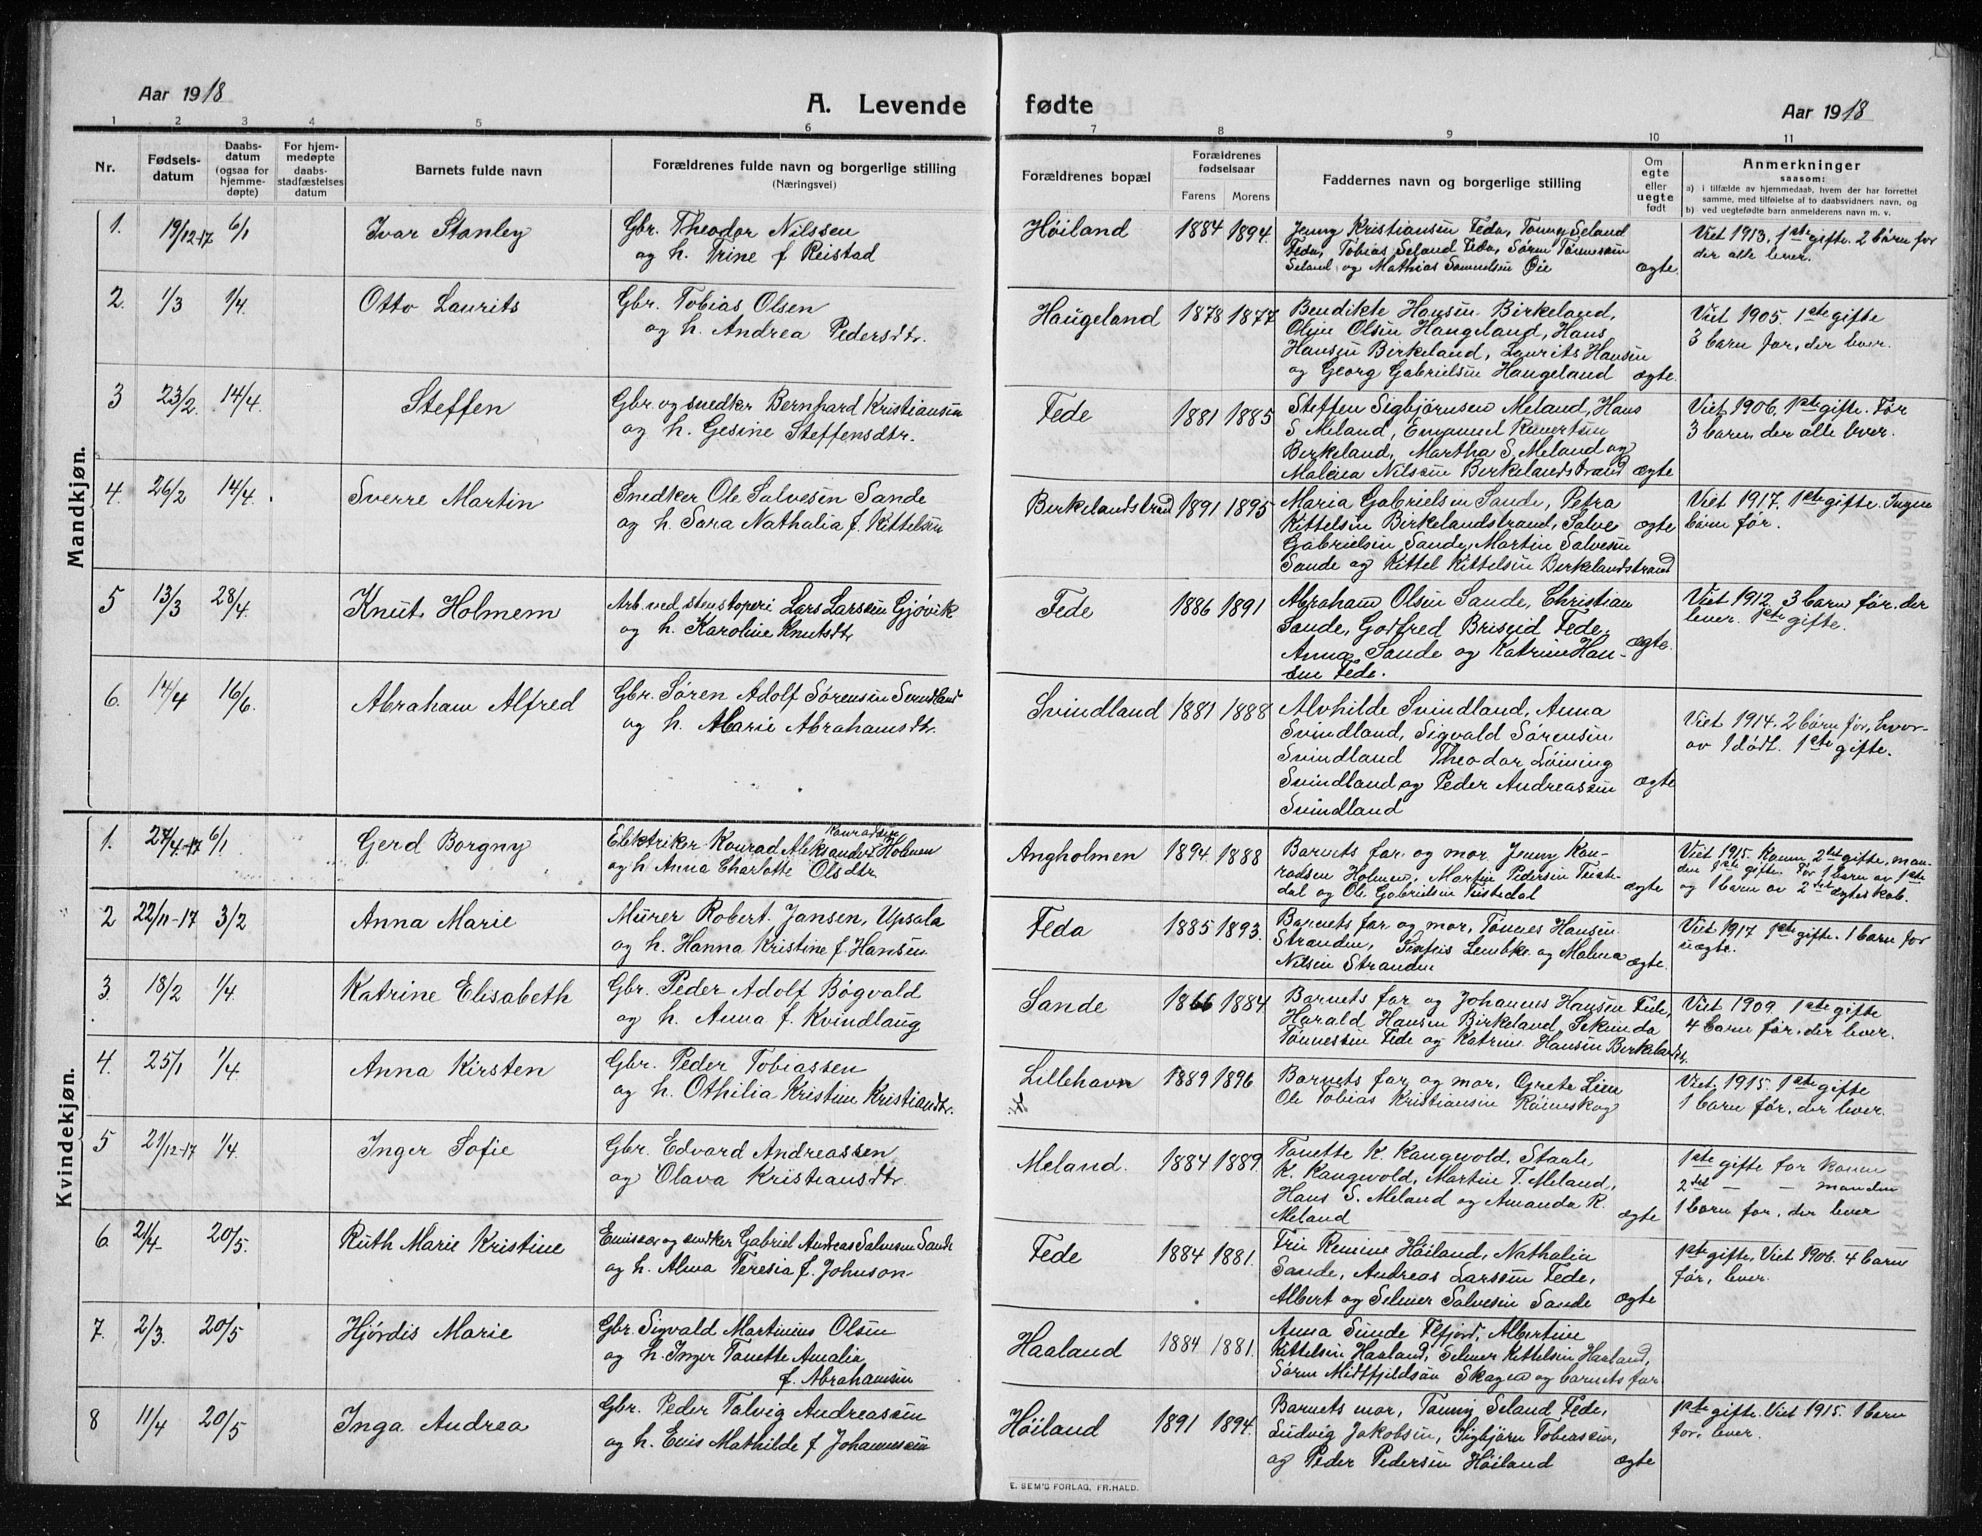 Aar 1918
A. Levende
fødte
Aar 1918
1 2 3 4 5 6 7 8 9 10 11
Nr.
Fødsels-
datum
Daabs-
datum
(ogsaa for
hjemme-
døpte)
For hjem-
medøpte
daabs-
stadfæstelses
datum
Barnets fulde navn
Forældrenes fulde navn og borgerlige stilling
(Næringsvei)
Forældrenes bopæl
Forældrenes
fødselsaar
Farens Morens
Faddernes navn og borgerlige stilling
Om
egte
eller
uegte
født
Anmerkninger
saasom:
a) i tilfælde av hjemmedaab, hvem der har forrettet
samme, med tilføielse af to daabsvidners navn, og
b) ved uegtefødte barn anmelderens navn m. v.
Mandkjøn.
1. 19/12-17 6/1 Ivar Stanley
Gbr. Theodor Nilssen
og h. Trine f. Reistad
Høiland 1884 1894.
Jenny Kristiansen Feda, Tonny Seland
Feda, Tobias Seland Feda, Sørn Tønnesøn
Seland og Mathias Samuelsen Øie
ægte.
Viet 1913. 1ste gifte. 2 børn før
der alle lever.
2. 1/3 1/4. Otto Laurits
Gbr. Tobias Olsen
og h. Andrea Pedersdtr.
Haugeland 1878 1877
Bendikte Hansen Birkeland,
Oline Olsen Haugeland, Hans
Hansen Birkeland, Laurits Hansen
og Georg Gabrielsen Haugeland
ægte.
Viet 1905. 1ste gifte
3 barn før, der lever.
3 23/2. 14/4. Steffen
Gbr. og snedker Bernhard Kristiansen
og h. Gesine Steffensdtr.
Fede 1881 1885
Steffen Sigbjørnsen Meland, Hans
S Meland, Emanuel
Birkeland, Martha S. Meland og
Nilsen Birkelandstrand
ægte
Viet 1906. 1ste gifte. Før
3 barn, der alle lever.
4. 26/2 14/4. Sverre Martin
Snedker Ole Salvesen Sande
og h. Sara Nathalia f. Kittelsen
Birkelandstrand 1891 1895
Maria Gabrielsen Sande, Petra
Kittelsen Birkelandstrand, Salve
Gabrielsen Sande, Martin Salvesen
Sande og Kittel Kittelsen Birkelandstrand
ægte
Viet 1917. 1ste gifte. Ingen
børn før.
5 13/3 28/4. Knut Holmem
Arb. ved stenstoperi Lars Larsen Gjøvik
og h. Karoline Knutsdtr
Fede 1886 1891
Abraham Olsen Sande, Christian
Sande, Godfred Briseid Fede,
Anna Sande og Katrine Han-
sen Fede.
ægte.
Viet 1912. 3 barn før, der
lever. 1ste gifte.
6. 14/4 16/6. Abraham Alfred
Gbr. Søren Adolf Sørensen Svindland
og h. Marie Abrahamsdtr.
Svindland 1881 1888
Alvhilde Svindland, Anna
Svindland, Sigvald Sørensen
Svindland Theodor Løining
Svindland og Peder Andreassen
Svindland
ægte
Viet 1914. 2 børn før, hvor-
av 1 dødt. 1ste gifte.
Kvindekjøn.
1. 27/4-17 6/1 Gerd Borgny
Konradsen
Elektriker Konrad Aleksander Holmen
og h. Anna Charlotte Olsdtr.
Angholmen 1894 1888
Barnets far og mor. Jenny Kon-
radsen Holmen, Martin Pedersen Tist-
dal og Ole Gabrielsen Tistedal
ægte
Viet 1915. Konen 2det gifte, man-
den 1ste gifte. Før 1 barn av 1ste
og 1 barn av 2det ægteskab.
2 22/11-17 3/2 Anna Marie
Murer Robert Jansen, Upsala
og h. Hanna Kristine f. Hansen
Feda 1885 1893.
Barnets far og mor, Tønnes Hansen
Stranden, Lembke og Malena
Nilsen Stranden
ægte.
Viet 1917 1ste gifte. 1 barn før
uægte.
3. 18/2 1/4. Katrine Elisabeth
Gbr. Peder Adolf Bøgvald
og h. Anna f. Kvindlaug
Sande 1866 1884
Barnets far og Johannes Hansen Fede,
Harald Hansen Birkeland, Sekunda
Tønnessen Fede og Katrine Hansen Birkeland.
Viet 1909. 1ste gifte
4 barn før, der lever.
4. 25/1 1/4 Anna Kirsten
Gbr. Peder Tobiassen
og h. Othilia Kristine Kristiansdtr.
Lillehavn 1889 1896
Barnets far og mor, Grete Lien
Ole Tobias Kristiansen
Viet. 1915. 1ste gifte
1 barn før, der lever.
5 21/12-17 1/4. Inger Sofie
Gbr. Edvard Andreassen
og Olava Kristiansdtr.
Meland. 1884 1889.
Tonette K Rangvold, Staale
K. Rangvold, Martin T. Meland,
Hans S. Meland og Amanda R.
Meland
ægte
1ste gifte for konen
2det — — manden
1 barn før, der lever
6. 21/4- 20/5. Ruth Marie Kristine
Emissær og snedker Gabriel Andreas Salvesen Sande
og h. Alma Teresia f. Johnson
Fede 1884 1881.
Fru Remine Høiland, Nathalia
Sande, Andreas Larssen Fede,
Albert og Selmer Salvesen Sande
ægte
1ste gifte. Viet 1906. 4 barn
før, lever.
7. 2/3. 20/5 Hjørdis Marie
Gbr. Sigvald Martinius Olsen
og h. Inger Tonette Amalia
f. Abrahamsen
Haaland 1884 1881.
Anna Sunde Flfjord, Albertine
Kittelsen Haaland, Selmer Kittelsen Haaland,
Sørn Midtfjeldsøn Skagen og barnets far
8 11/4 20/5 Inga Andrea
Gbr. Peder Talvig Andreassen
og h. Enis Mathilde f. Johannessen
Høiland 1891 1894.
Barnets mor, Tonny Seland Fede,
Ludvig Jakobsen, Sigbjørn Tobiassen,
og Peder Pedersen Høiland
ægte
1ste gifte. Viet 1915. 1 barn
før, lever.
E. SEM'S FORLAG, FR.HALD.